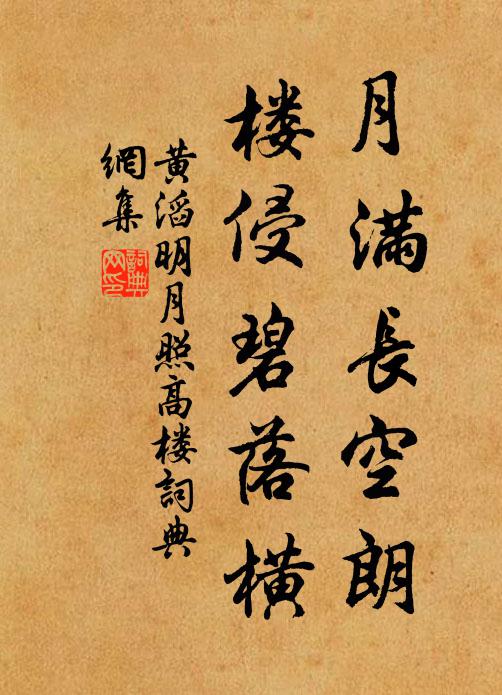 月滿長空朗
楼侵碧落橫
黄滔明月照高楼詞典
網集
詞典
网印